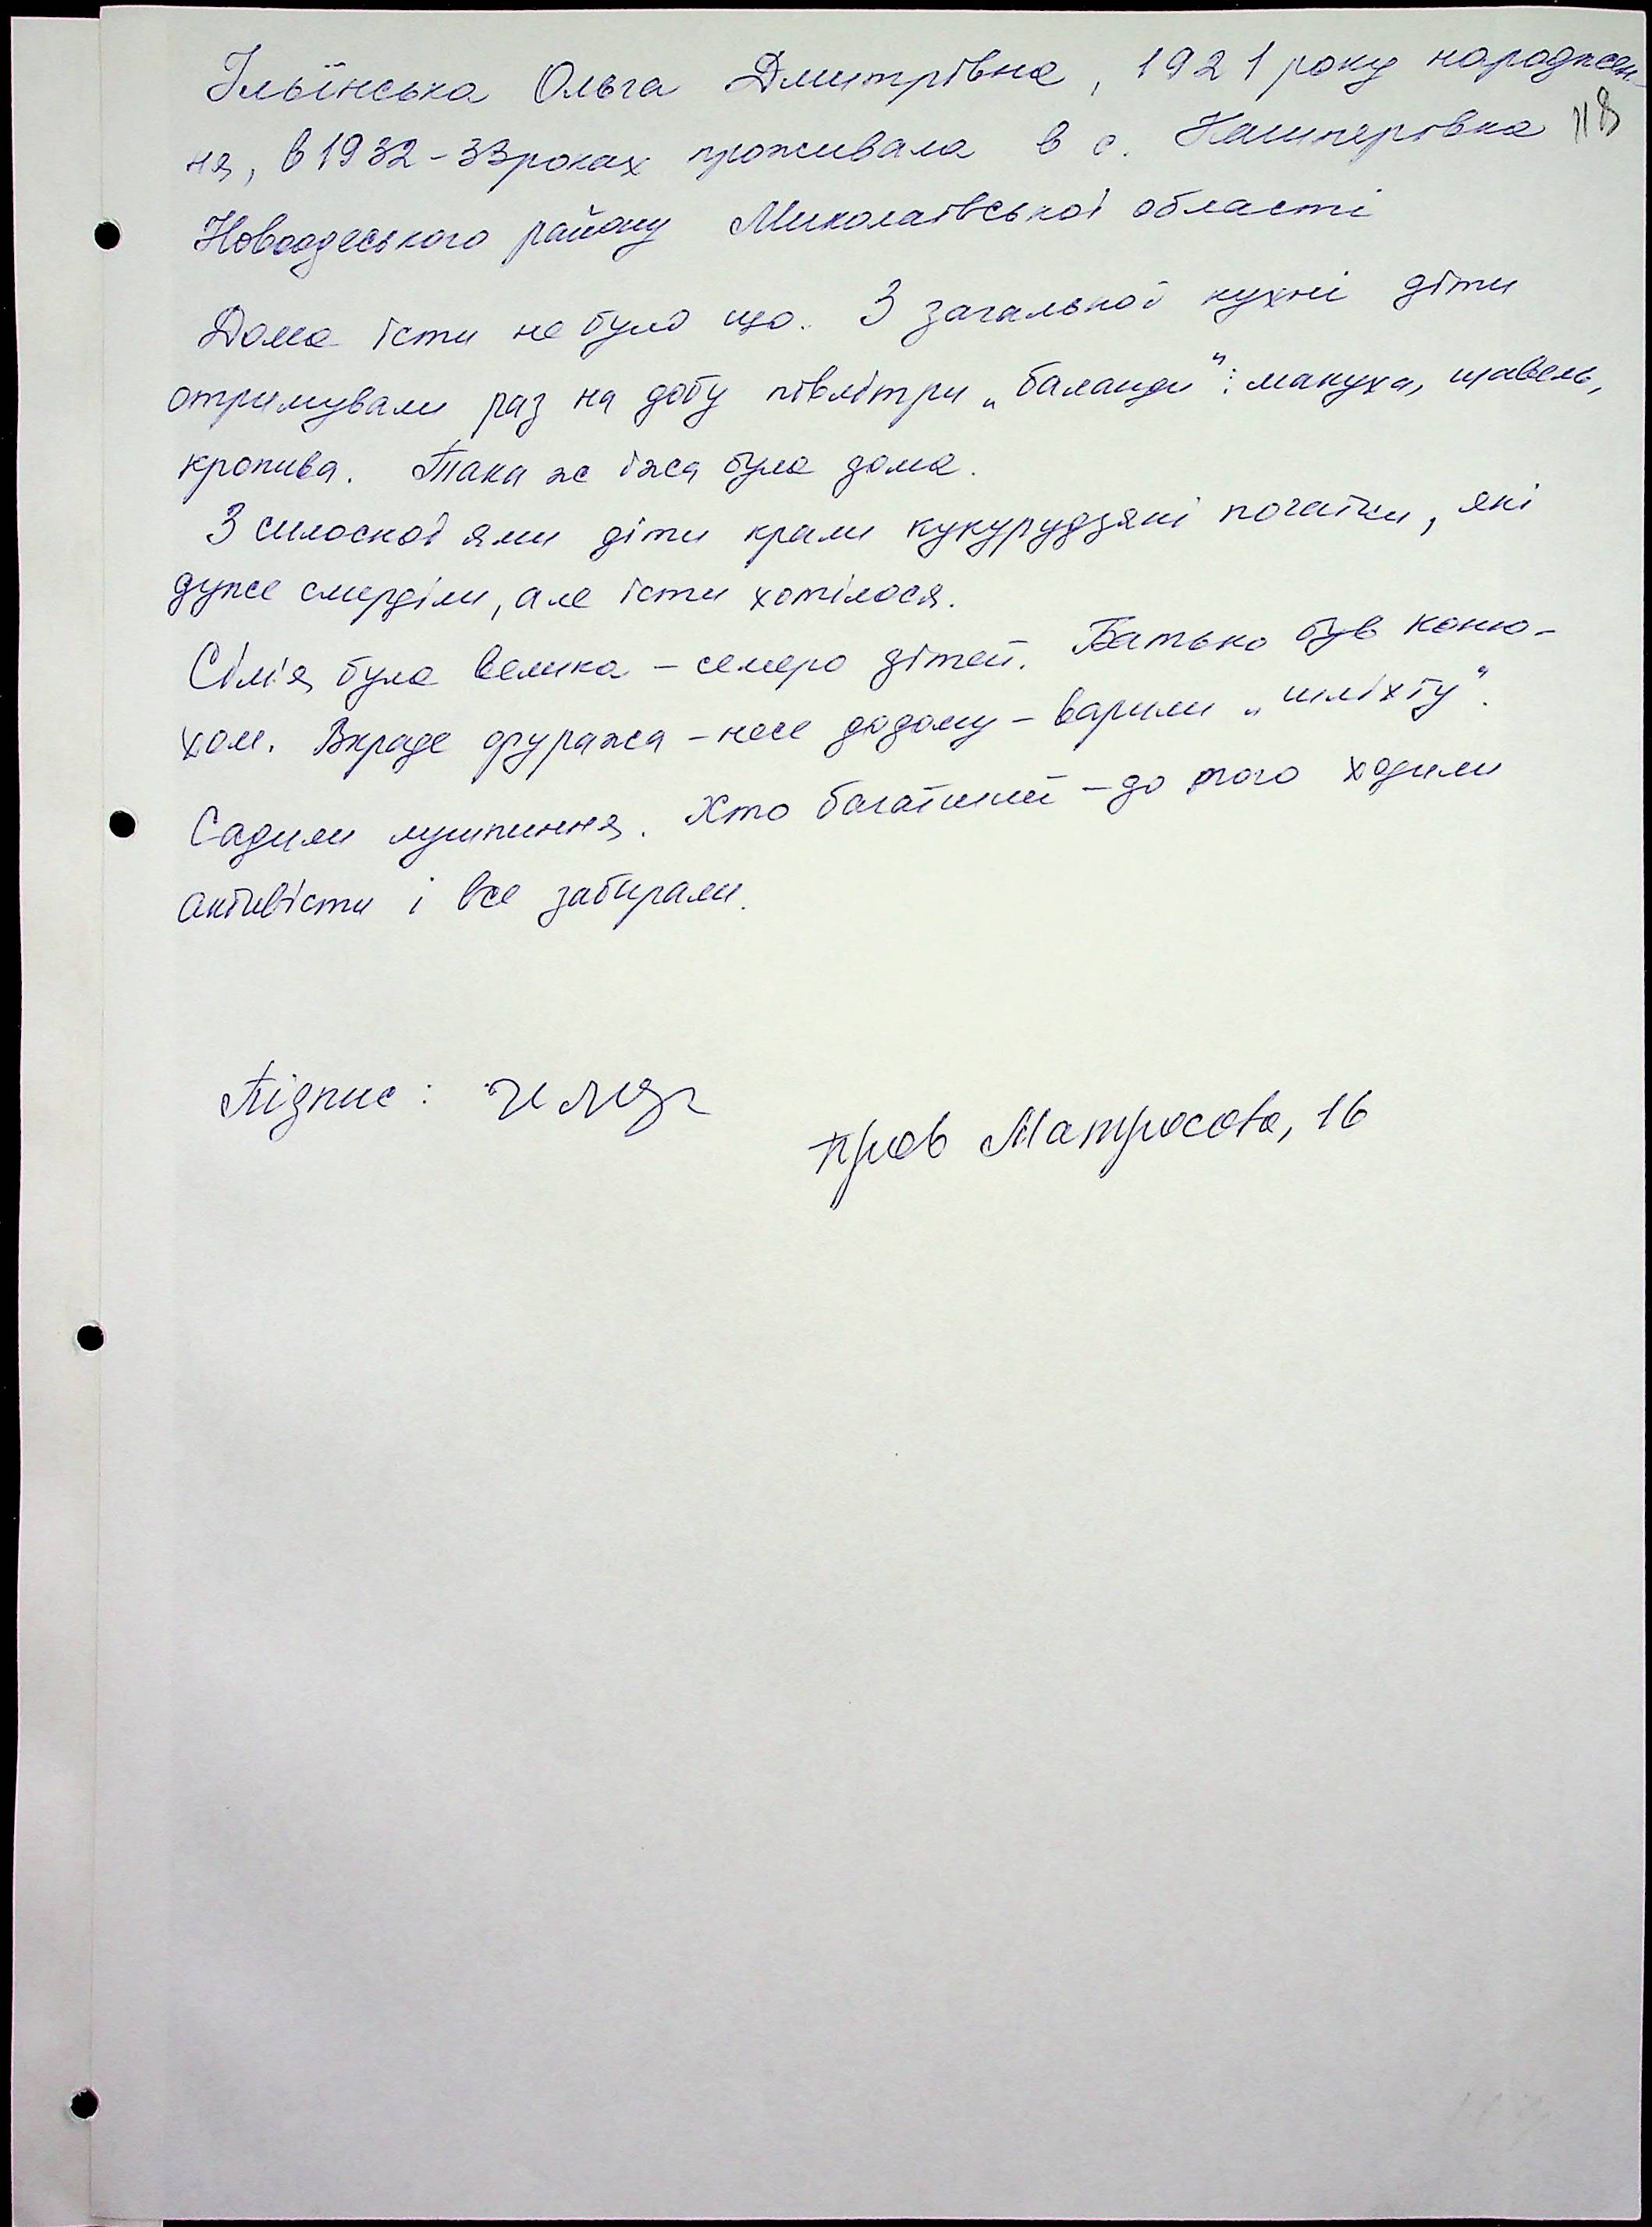 Ільїнська Ольга Дмитрівна, 1921 року народжен-
118
ня, в 1932-33 роках проживала в с. Кашперівка
Новоодеського району Миколаївської області
Дома їсти не було що. З загальної кухні діти
отримували раз на добу півлітри „баланди": макуха, щавель,
кропива. Така ж їжа була дома.
З силосної ями діти крали кукурудзяні початки, які
дуже смерділи, але їсти хотілося.
Сім'я була велика – семеро дітей. Батько був коню-
хом. Вкраде фуража – несе додому – варили „шліхту".
Садили лушпиння. Хто багатший – до того ходили
активісти і все забирали.
Підпис:
пров Матросова, 16